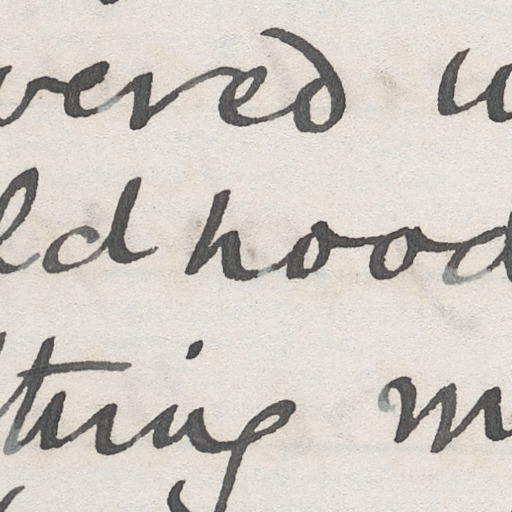 vered w
ld hood
thing m